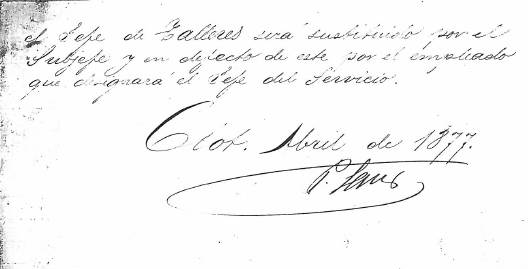 el Jefe de Talleres será sustituido por el
Subjefe y en defecto de este por el empleado
que designará el Jefe del Servicio.
Abril de 1877.
P. Sans